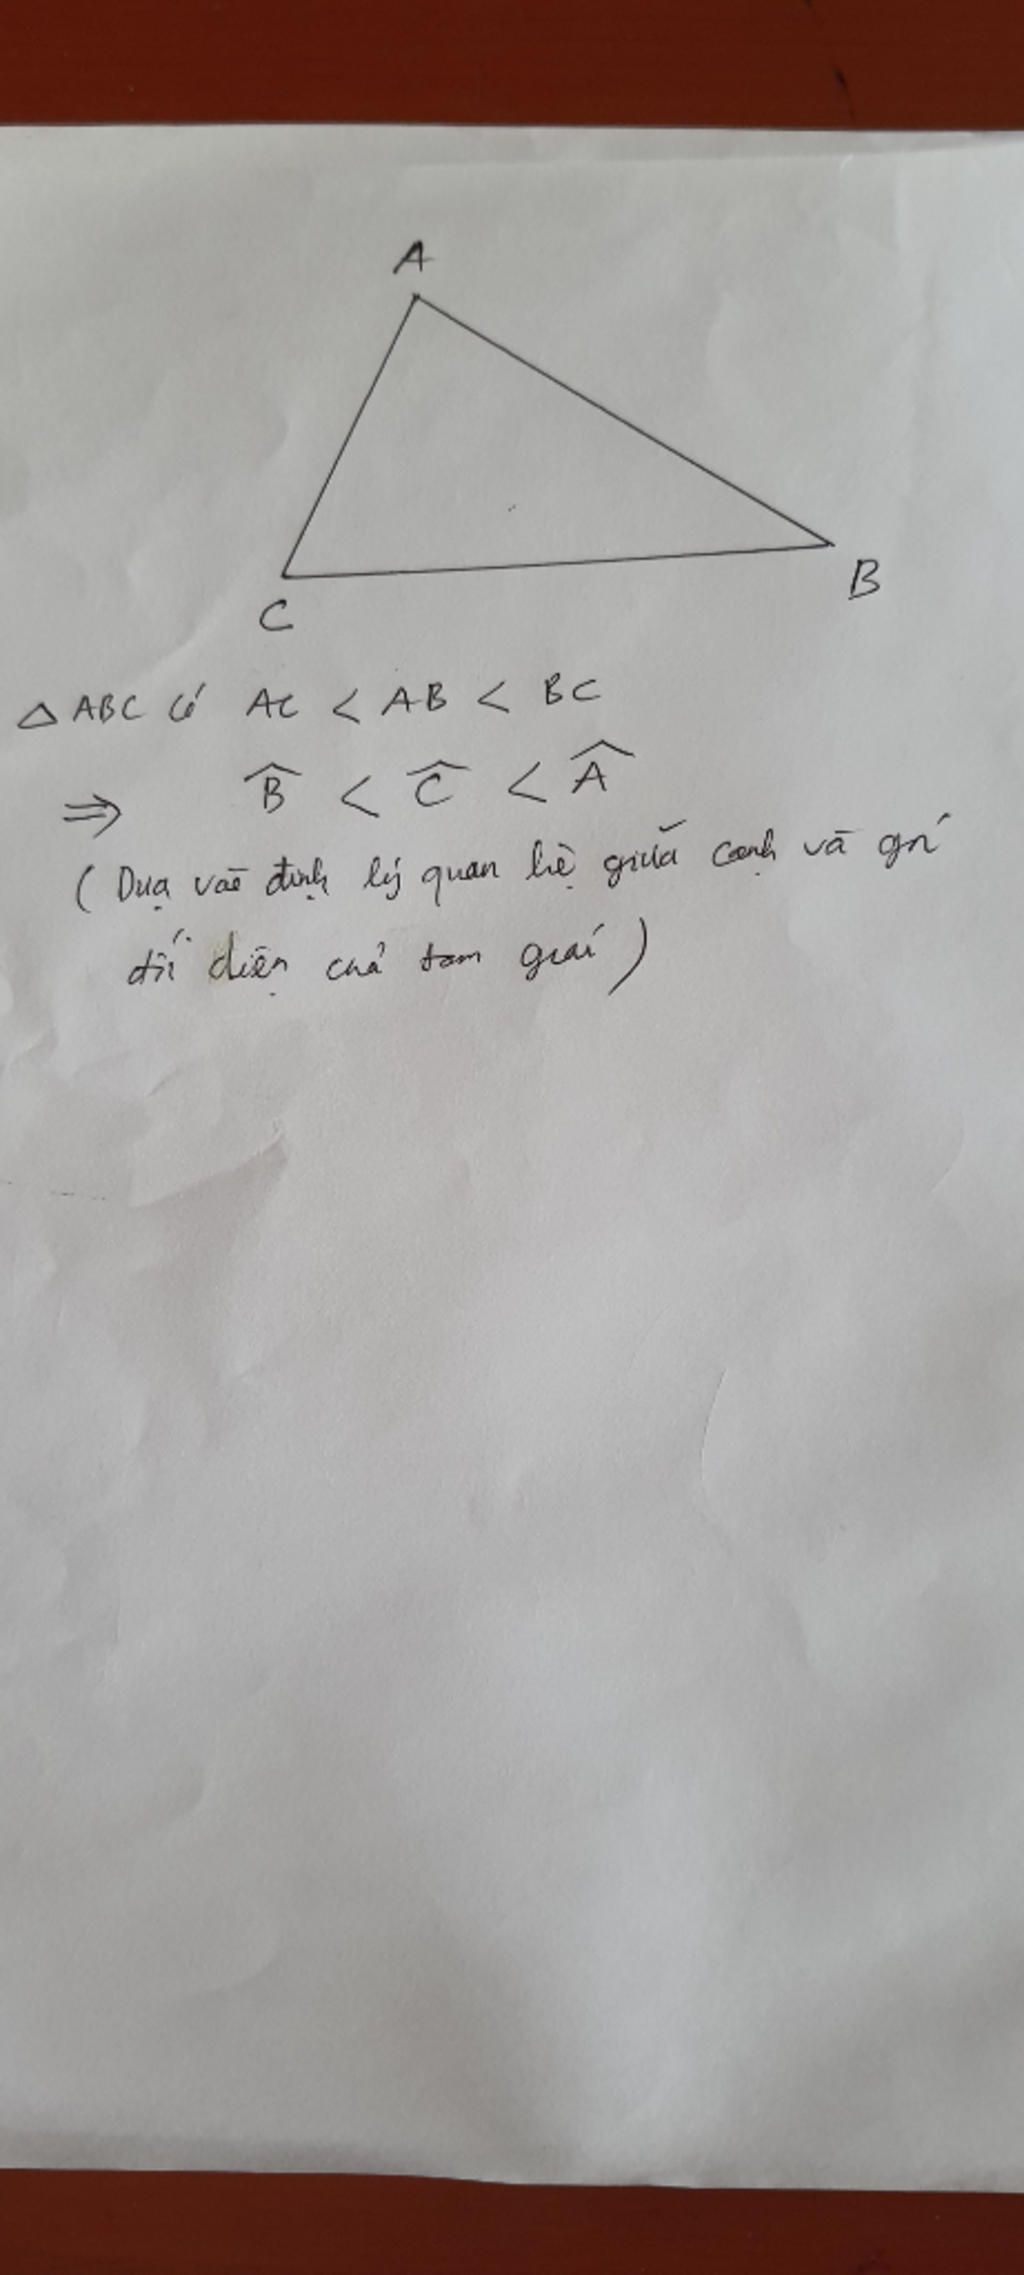 A
B
C
△ABC có AC < AB < BC
⇒ B̂ < Ĉ < Â
(Dựa vào định lý quan hệ giữa cạnh và góc
đối diện của tam giác)